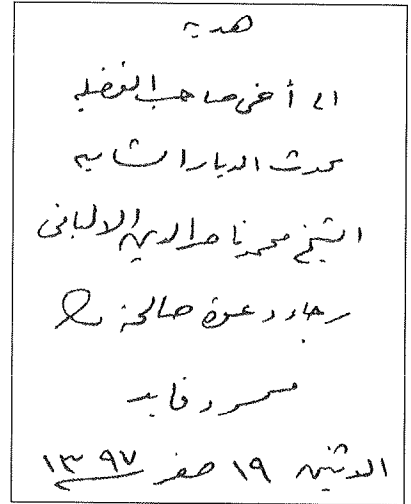 هدية
إلى أخي صاحب الفضيلة
محدث الديار الشامية
الشيخ محمد ناصر الدين الألباني
رجاء دعوة صالحة
محمود فايد
الاثنين ١٩ صفر ١٣٩٧